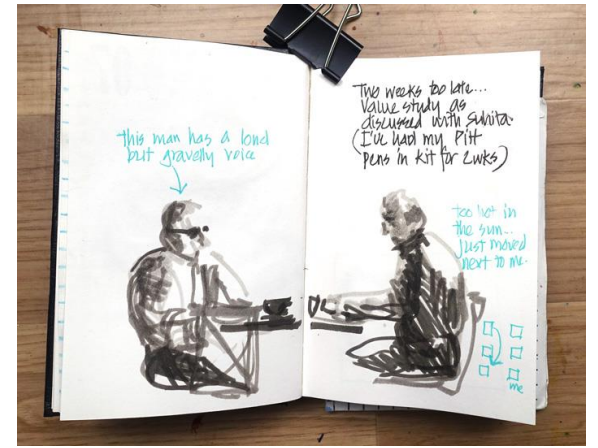 this man has a loud
but gravelly voice
Two weeks too late...
value study as
discussed with Suhita.
(I've had my Pitt
pens in kit for 2wks)
too hot in
the sun...
just moved
next to me.
me